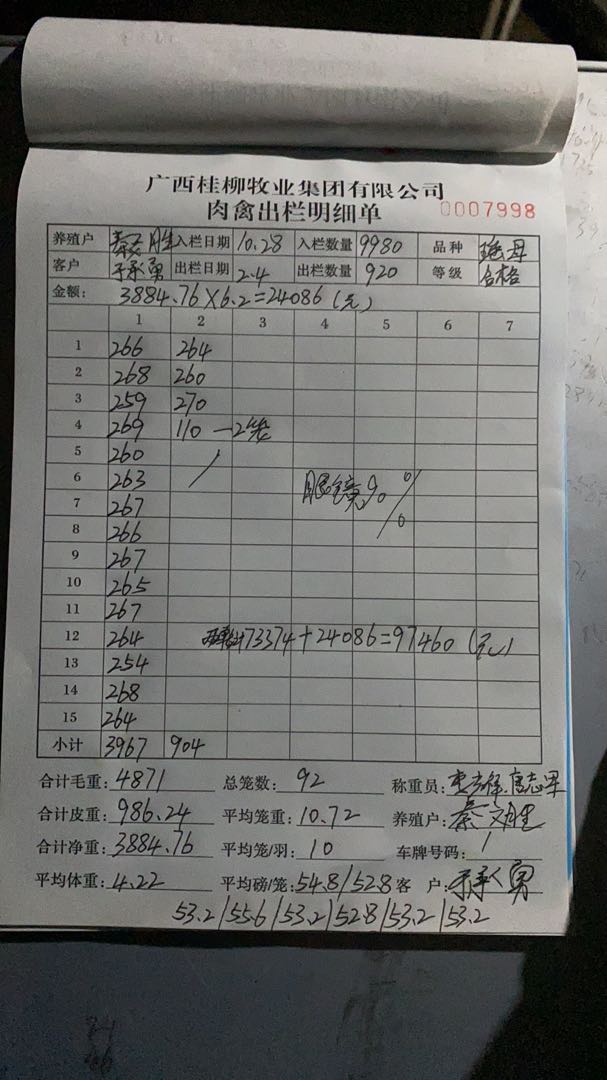 广西桂柳牧业集团有限公司
肉禽出栏明细单 0007998
养殖户 秦文胜 入栏日期 10.28 入栏数量 9980 品种 瑶母
客户 于承勇 出栏日期 2.4 出栏数量 920 等级 合格
金额: 3884.76×6.2=24086(元)
1 2 3 4 5 6 7
1 266 264
2 268 260
3 259 270
4 269 110 —2笼
5 260
6 263
眼镜90%
7 267
8 266
9 267
10 265
11 267
12 264 73374+24086=97460(元)
13 254
14 268
15 264
小计 3967 904
合计毛重: 4871 总笼数: 92 称重员: 唐志军
合计皮重: 986.24 平均笼重: 10.72 养殖户: 秦文胜
合计净重: 3884.76 平均笼/羽: 10 车牌号码: 1
平均体重: 4.22 平均磅/笼: 54.8/52.8 客 户: 于承勇
53.2/55.6/53.2/52.8/53.2/53.2